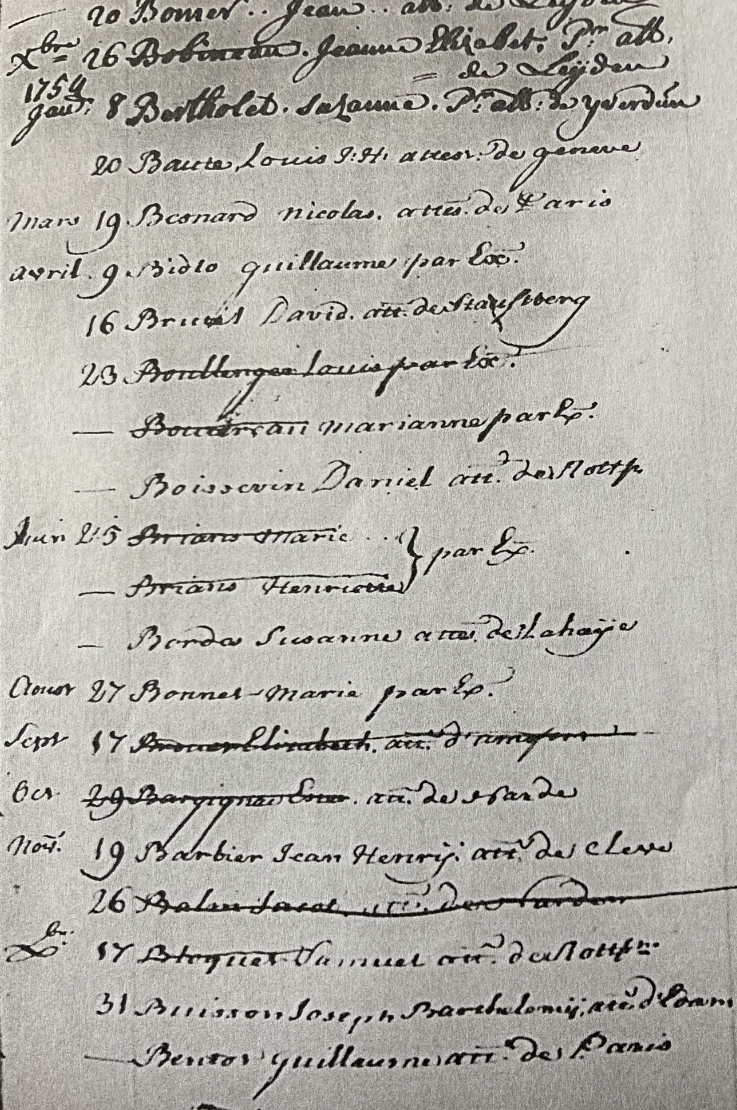 20 Bomer .. Jean .. att: de Leyden
Xbre 26 Bobineau. Jeanne Elizabet. Pr att.
= de Leyden
1754
Janv: 8 Bertholet. Suzanne. Pr att: de yverdun
20 Baute, Louis J:H: attes: de geneve
Mars 19 Besnard nicolas. attes. de Paris
avril. 9 Bidlo guillaume par Ex:
16 Bruel David. att. de
23 Boullenger Louis par Ex:
— Boudreau marianne par Ex:
— Boissevin Daniel att. de Rottr
Juin 25 Brians Marie .. } par Ex.
— Brians Henriette
— Borda Susanne attes. de Lahaÿe
Aoust 27 Bonnet Marie par Ex.
Sept 17 Brouer Elizabeth. att. d'amsfort
Oct. 29 att. de
Nov. 19 Barbier Jean Henrij. att. de Cleve
26 att.
Xbr. 17 Bloquet Samuel att. de Rottrm.
31 Buisson Joseph Barthelemij, att. d'Edam
— Bentos guillaume att. de Paris